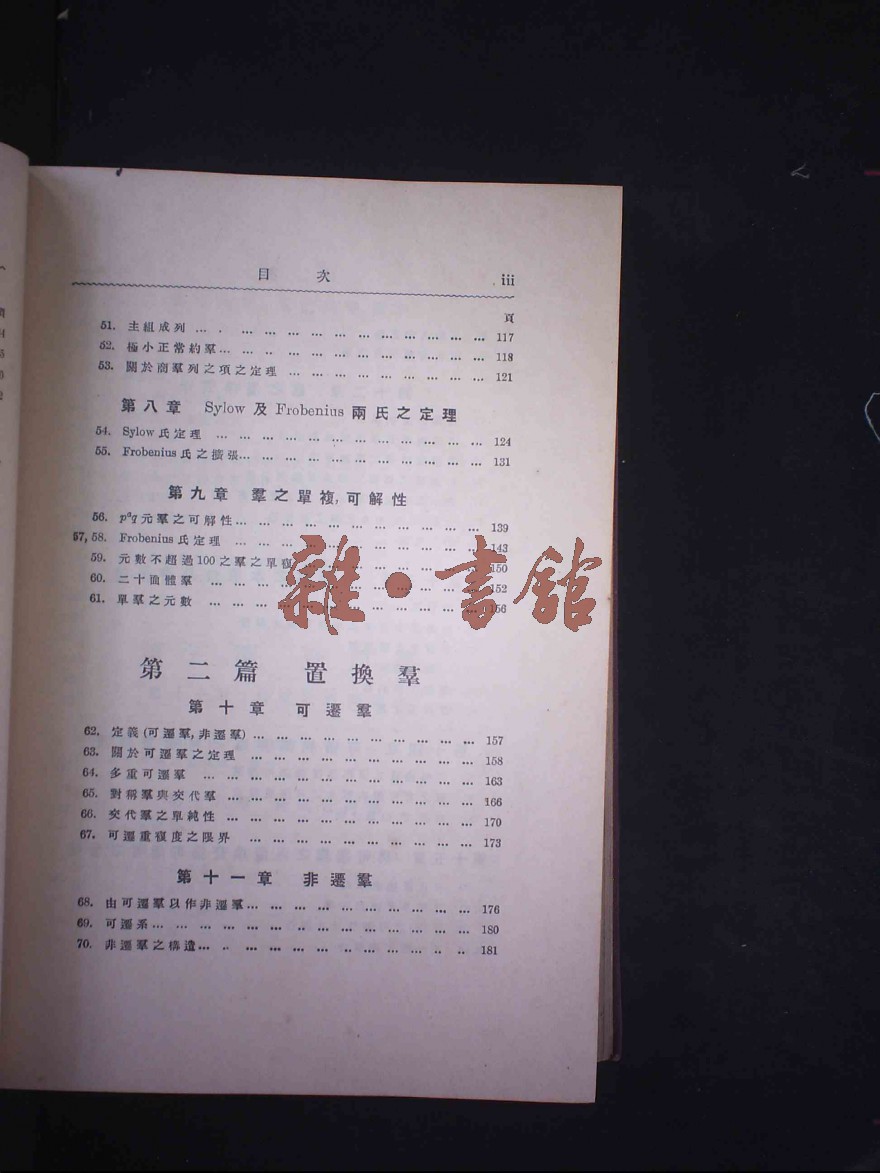 目 次 iii
頁
51. 主組成列 … . … … … … … … … … … … … 117
52. 極小正常約羣… … .. … … … … … … … … … … 118
53. 關於商羣列之項之定理 … … … … … … … … … 121
第八章 Sylow 及 Frobenius 兩氏之定理
54. Sylow 氏定理 … … … … … … … … … … … … 124
55. Frobenius 氏之擴張… … … … … … … … … … … 131
第九章 羣之單複,可解性
56. pᵃq 元羣之可解性… … … … … … … … … … … 139
57, 58. Frobenius 氏定理 … … … … … … … … … … … 143
59. 元數不超過100之羣之單複 … … … … … … … … 150
60. 二十面體羣 … … … … … … … … … … … … 152
61. 單羣之元數 … … … … … … … … … … … … 156
雜·書館
第二篇 置換羣
第十章 可遷羣
62. 定義(可遷羣,非遷羣) … … … … … … … … … … 157
63. 關於可遷羣之定理 … … … … … … … … … … 158
64. 多重可遷羣 … … … … … … … … … … … … 163
65. 對稱羣與交代羣 … … … … … … … … … … … 166
66. 交代羣之單純性 … … … … … … … … … … … 170
67. 可遷重複度之限界 … … … … … … … … … … 173
第十一章 非遷羣
68. 由可遷羣以作非遷羣… … … … … … … … … … 176
69. 可遷系… … … … … … .. … … … … … … … 180
70. 非遷羣之構造… .. … … … … … … … … .. .. 181